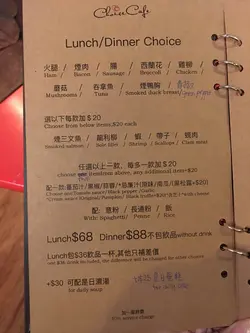 Choice Cafe
Lunch/Dinner Choice
火腿 / 煙肉 / 腸 / 西蘭花 / 雞柳 /
Ham/ Bacon/ Sausage/ Broccoli / Chicken/
蘑菇 / 吞拿魚 / 煙鴨胸 /
Mushrooms / Tuna / Smoked duck breast/
選以下每款加 $20
Choose from below items,$20 each
煙三文魚 / 龍利柳 / 蝦 / 帶子 / 蟹肉
Smoked salmon / Sole fillet / Shrimp / Scallops / Claw meat
任選以上一款, 每多一款加$20
Choose one from above, any additional item+$20
配:意粉 / 長通粉 / 飯
With: Spaghetti/ Penne / Rice
Lunch$68 Dinner$88不包飲品without drink
Lunch包$36飲品一杯,其他只補差價
+$30 可配是日濃湯
for daily soup
加一服務費
10% service charge